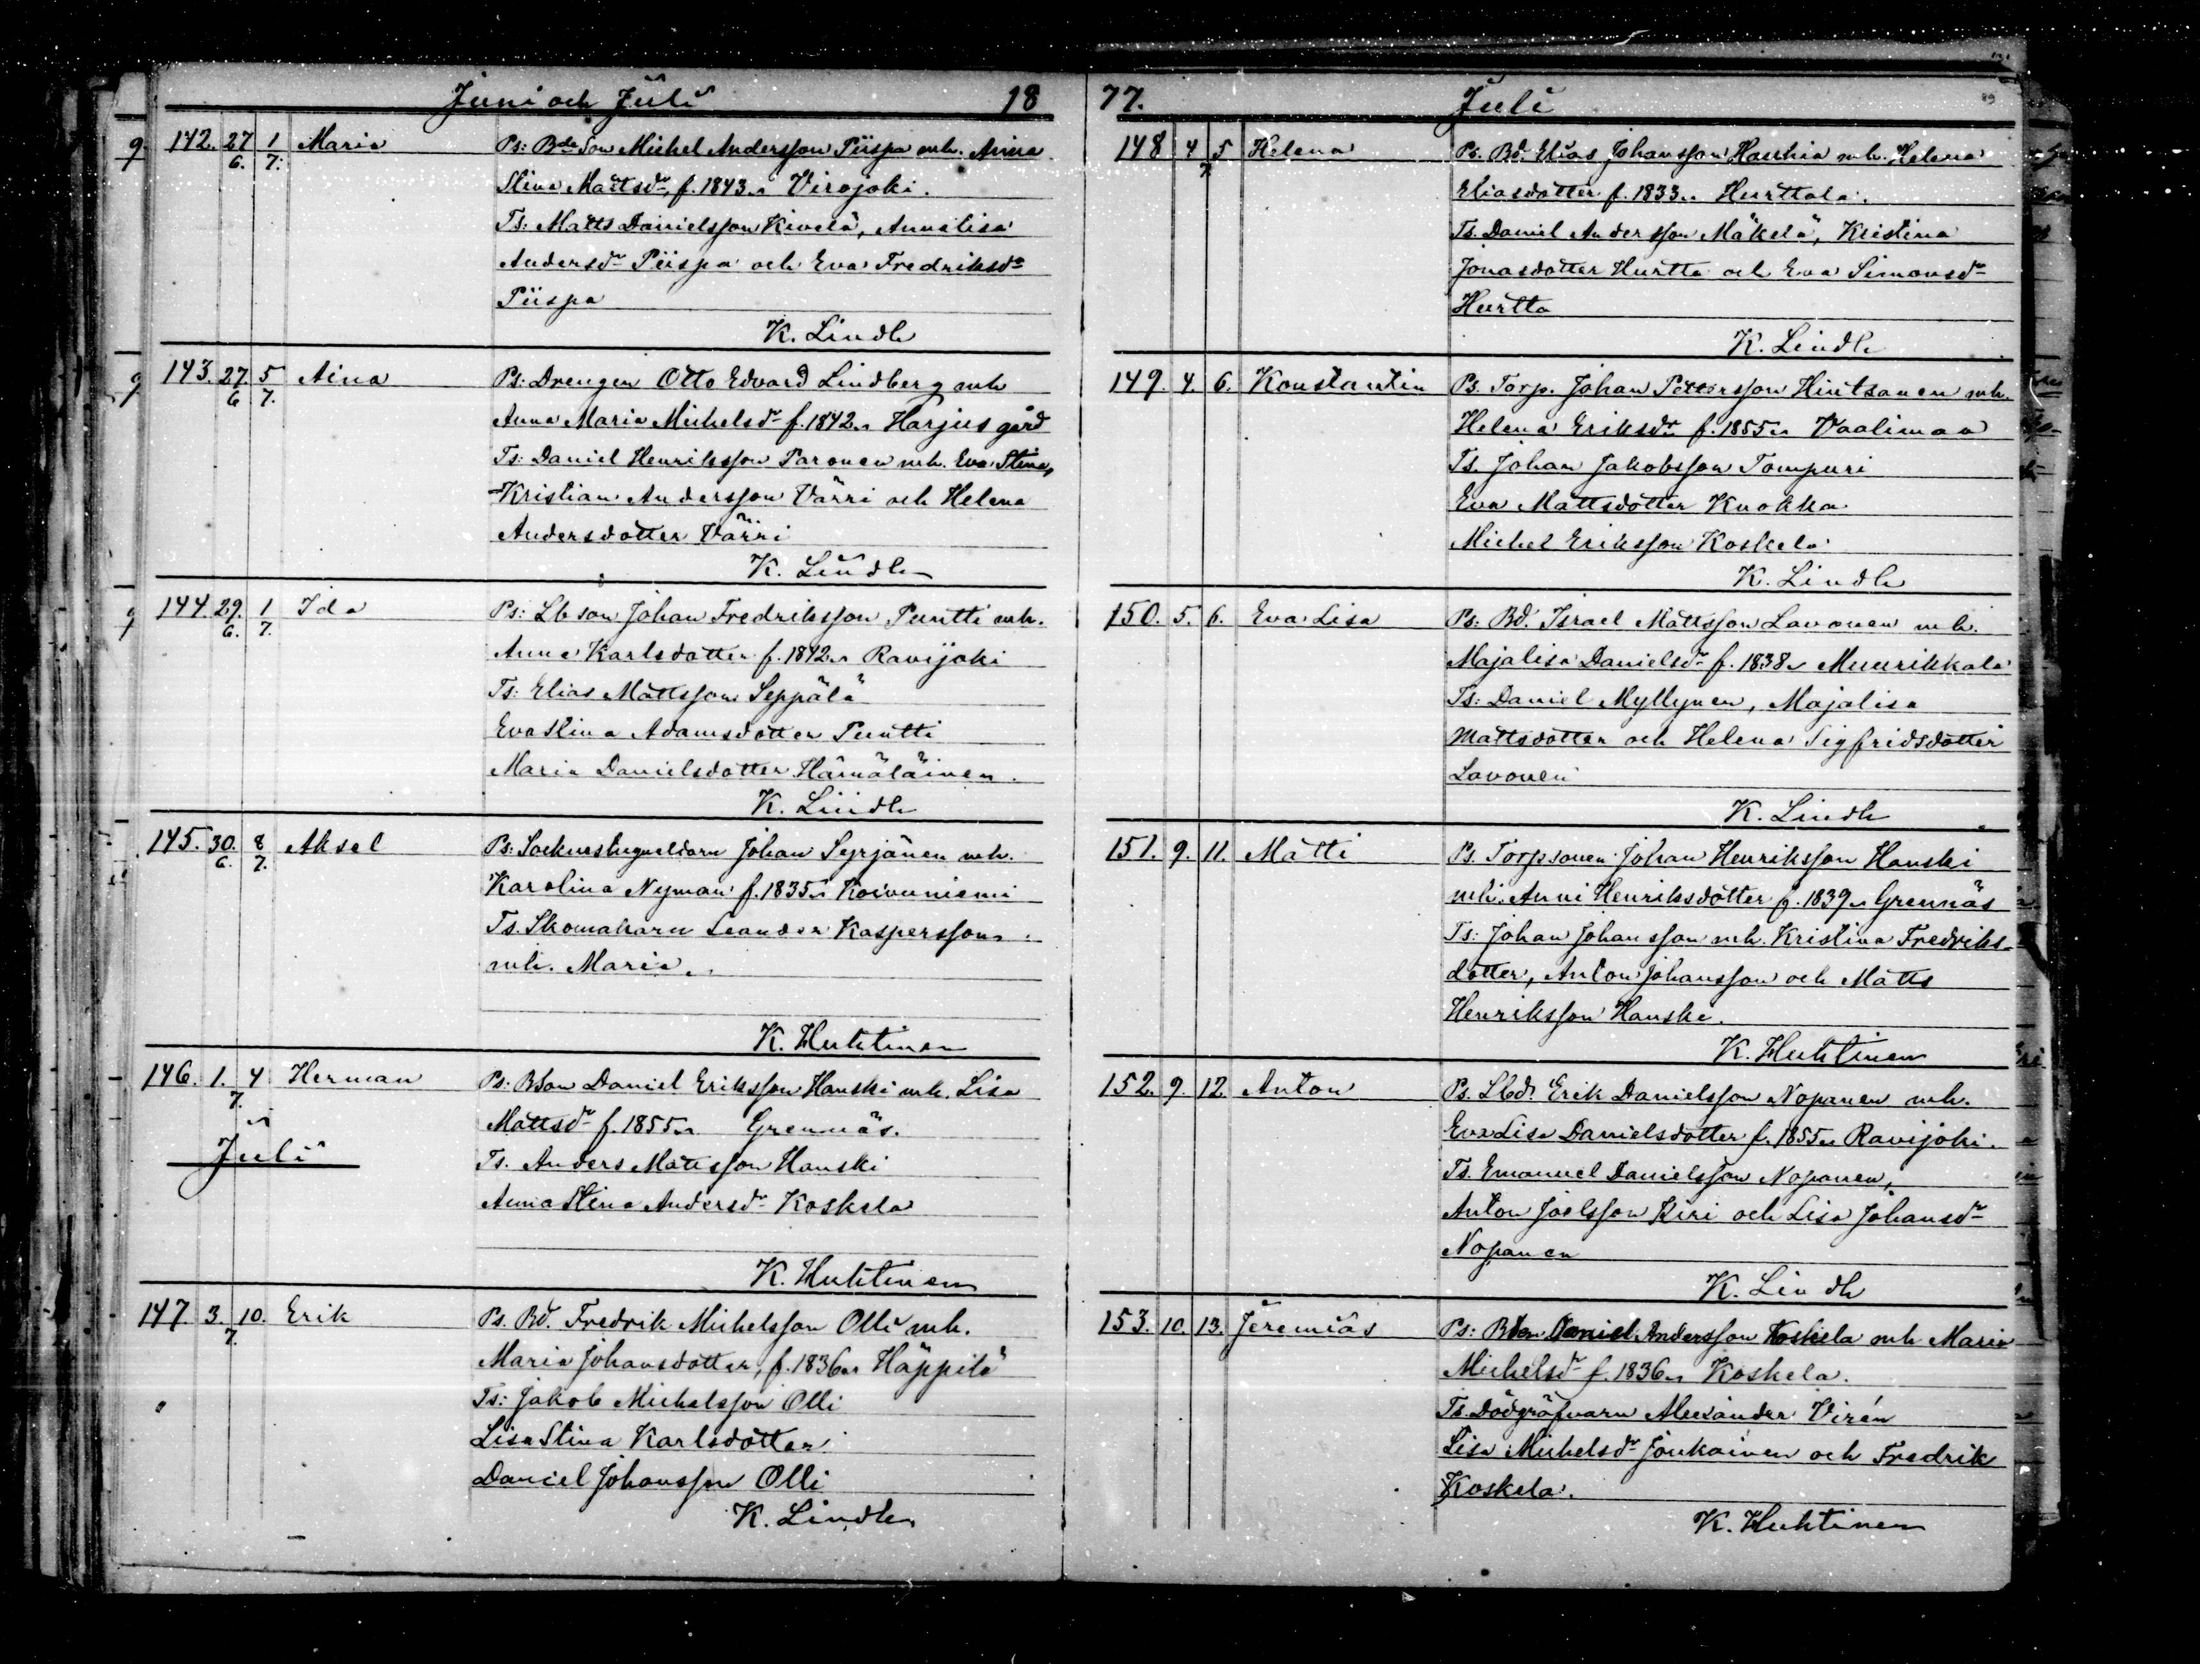 Juni och Juli 18
142. 27/6. 1/7. Maria Ps: Bde Son Michel Andersson Piispa mh. Anna
Stina Mattsdr f. 1843. Virojoki.
Ts: Matts Danielsson Kivelä, Annalisa
Andersdr Piispa och Eva Fredriksdr
Piispa
K. Lindh
143. 27/6 5/7. Aina Ps: Drengen Otto Edvard Lindberg mh
Anna Maria Michelsdr f. 1842. Harjus gård
Ts: Daniel Henriksson Paronen mh. Eva Stina,
Kristian Andersson Värri och Helena
Andersdotter Värri
K. Lindh
144. 29/6. 1/7. Ida Ps: Lbson Johan Fredriksson Puntti mh.
Anna Karlsdotter f. 1842. Ravijoki
Ts: Elias Mattsson Seppälä
Eva Stina Adamsdotter Puntti
Maria Danielsdotter Hämäläinen.
K. Lindh
145. 30/6. 8/7. Aksel Ps: Johan Syrjänen mh.
Karolina Nyman f. 1835. Koivuniemi
Ts. Skomakarn Leander Kaspersson
mh. Maria.
K. Huhtinen
146. 1/7. 4 Herman Ps: BSon Daniel Eriksson Hanski mh. Lisa
Mattsdr f. 1855. Grennäs.
Juli
Ts. Anders Mattsson Hanski
Anna Stina Andersdr Koskela
K. Huhtinen
147. 3/7. 10. Erik Ps. Bd. Fredrik Michelsson Olli mh.
Maria Johansdotter, f. 1836. Häppilä
Ts: Jakob Michelsson Olli
Lisa Stina Karlsdotter
Daniel Johansson Olli
K. Lindh
77. Juli
148 4/7 5 Helena Ps. Bd. Elias Johansson Hauhia mh. Helena
Eliasdotter f. 1833. Hurttala.
Ts. Daniel Andersson Mäkelä, Kristina
Jonasdotter Hurtta och Eva Simonsdr
Hurtta
K. Lindh
149. 4. 6. Konstantin Ps. Torp. Johan Pettersson Hintsanen mh.
Helena Eriksdr f. 1855. Vaalimaa
Ts. Johan Jakobsson Tompuri
Eva Mattsdotter Kuokka
Michel Eriksson Koskela
K. Lindh
150. 5. 6. Eva Lisa Ps: Bd. Israel Mattsson Lavonen mh.
Majalisa Danielsdr f. 1838. Muurikkala
Ts: Daniel Myllynen, Majalisa
Mattsdotter och Helena Sigfridsdotter
Lavonen
K. Lindh
151. 9. 11. Matti Ps. Torpsonen Johan Henriksson Hanski
mh. Anni Henriksdotter f. 1839. Grennäs
Ts: Johan Johansson mh. Kristina Fredriks-
dotter, Anton Johansson och Matts
Henriksson Hanski.
K. Huhtinen
152. 9. 12. Anton Ps. Lbd. Erik Danielsson Nopanen mh.
Eva Lisa Danielsdotter f. 1855. Ravijoki.
Ts. Emanuel Danielsson Nopanen,
Anton Joelsson Kiri och Lisa Johansdr
Nopanen
K. Lindh
153. 10. 13. Jeremias Ps: BSon Daniel Andersson Koskela mh Maria
Michelsdr f. 1836. Koskela.
Ts. Dödgräfvarn Alexander Virén
Lisa Michelsdr Joukainen och Fredrik
Koskela.
K. Huhtinen